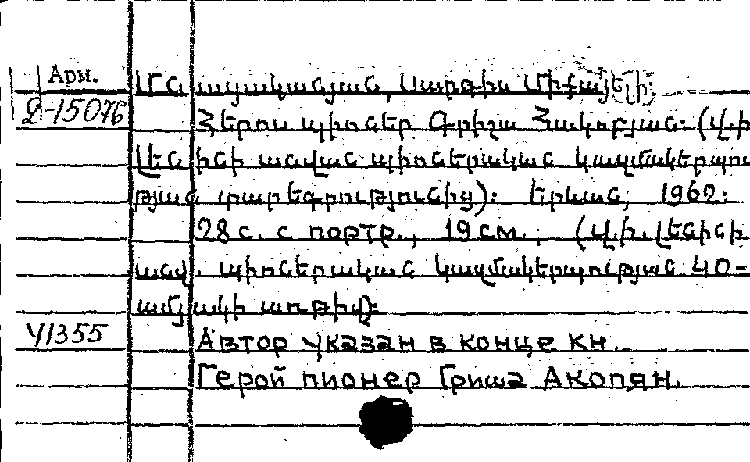 Арм.
Մն ացականյան, Սարգիս Միքայելի
Д-15076
Հերոս պիոներ Գրիշա Հակոբյան: (Վ.Ի
Լեն ինի անվան պիոներական կազմակերպու
թյան տարեգրությունից): Երևան, 1962:
28 с. с портр., 19 см., (Վ.Ի. Լենինի
անվ. պիոներական կազմակերպության 40-
ամյակի առթիվ):
41355
Автор указан в конце кн.
Герой пионер Гриша Акопян.